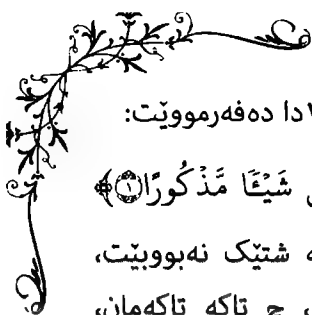 دا دەفەرموویت:
شَيْـًٔا مَّذْكُورًا ﴿١﴾
شتێک نەبووبێت،
چ تاکە تاکەمان،